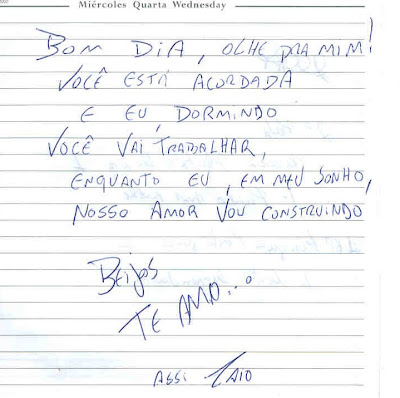 Miércoles Quarta Wednesday
BOM DIA, OLHE PRA MIM!
VOCÊ ESTÁ ACORDADA
E EU, DORMINDO
VOCÊ VAI TRABALHAR,
ENQUANTO EU, EM MEU SONHO,
NOSSO AMOR VOU CONSTRUINDO
BEIJOS
TE AMO...
ASSI CAIO